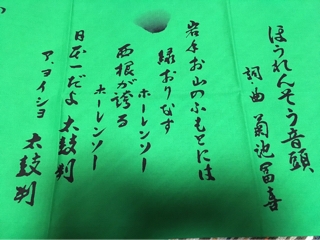 ほうれんそう音頭
詞・曲 菊池冨喜
岩手お山のふもとには
緑おりなす
ホーレンソー
西根が誇る
ホーレンソー
日本一だよ 太鼓判
ア、ヨイショ
太鼓判